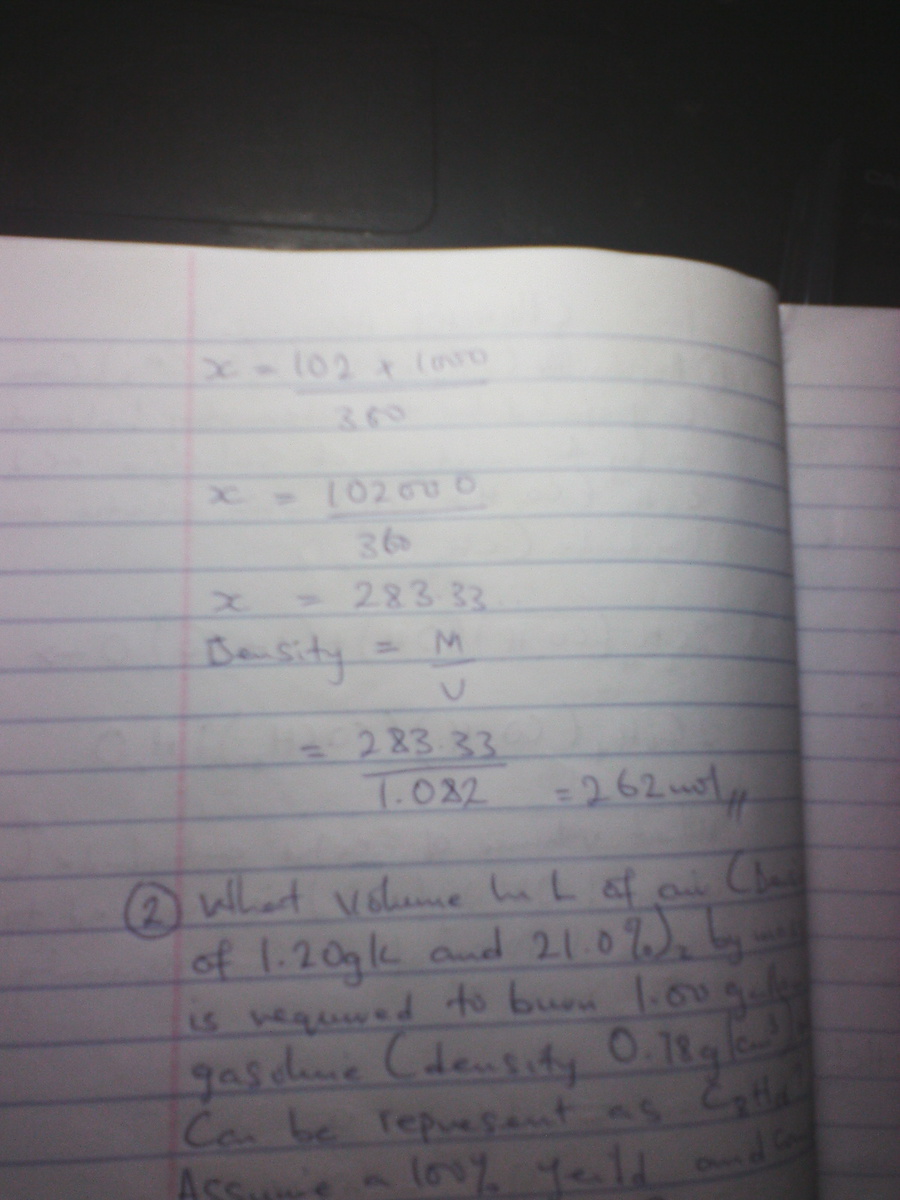 x = 102 x 1000
360
x = 102000
360
x = 283.33
Density = M
V
= 283.33
1.082 = 262 mol //
② What volume in L of air (
of 1.20g/L and 21.0%)2 by mass
is required to burn 1.00
gasoline (density 0.78g/cm3)
Can be represent as C8H18
Assume a 100% yeild and